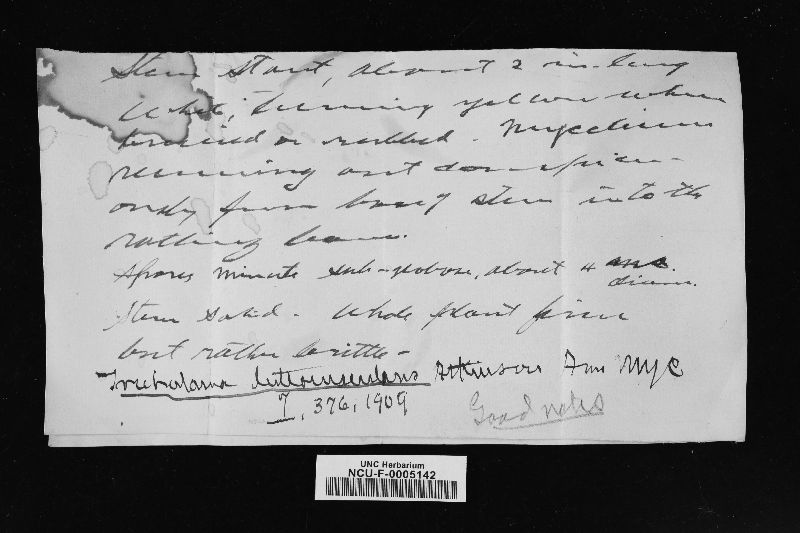 Stem stout, about 2 in. long
White, turning yellow when
bruised or rubbed. Mycelium
running out conspicu-
ously from base of stem into the
rotting leaves.
Spores minute sub-globose, about 4 mc.
diam.
Stem solid - Whole plant firm
but rather brittle -
Tricholoma lutomaculans Atkinson Ann Myc
7, 376, 1909
Good notes
UNC Herbarium
NCU-F-0005142